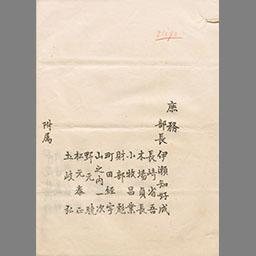 庶務
部長 伊瀬知好成
長崎省吾
木場貞長
小牧昌業
財部
町田経宇
山之内一次
野元
松元
土岐
附属